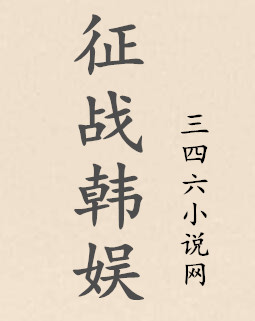 征战韩娱
三四六小说网